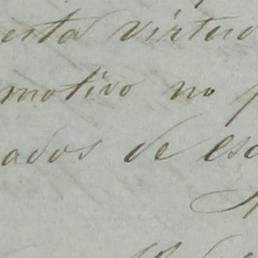 esta virtu
motivo no
ados de es